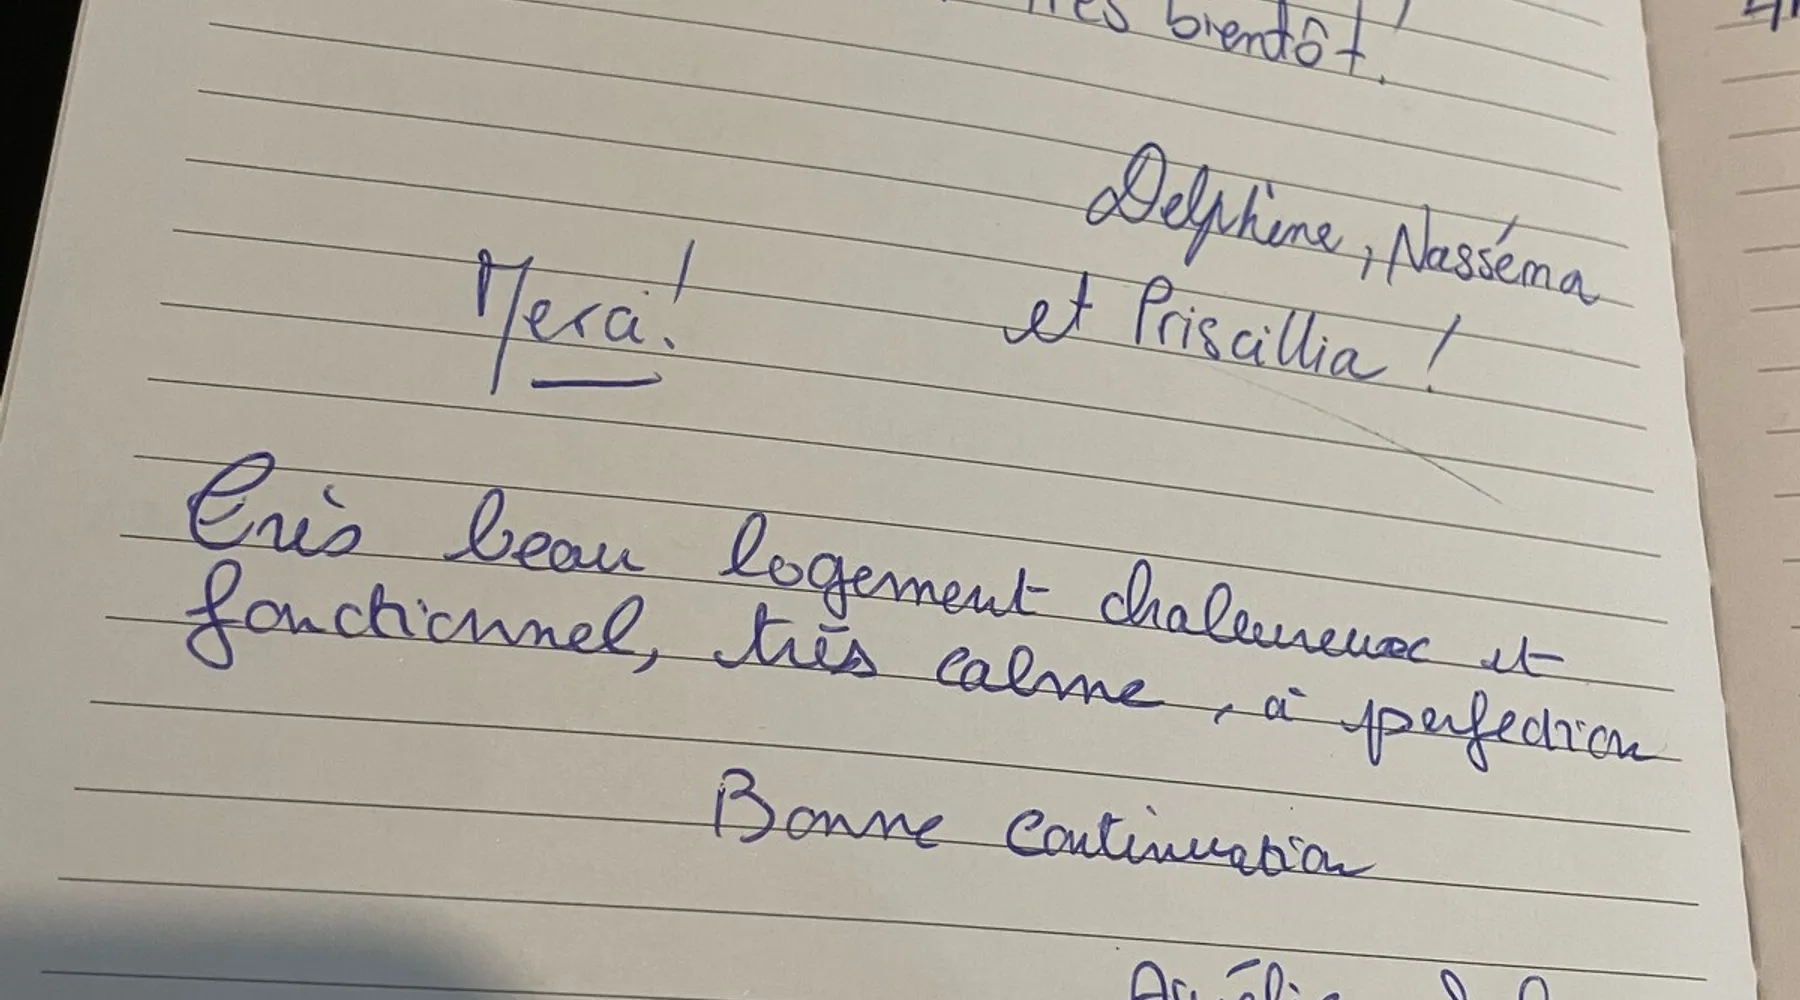 très bientôt.
Delphine, Nasséma
Merci!
et Priscillia !
Très beau logement chaleureux et
fonctionnel, très calme, à perfection
Bonne continuation